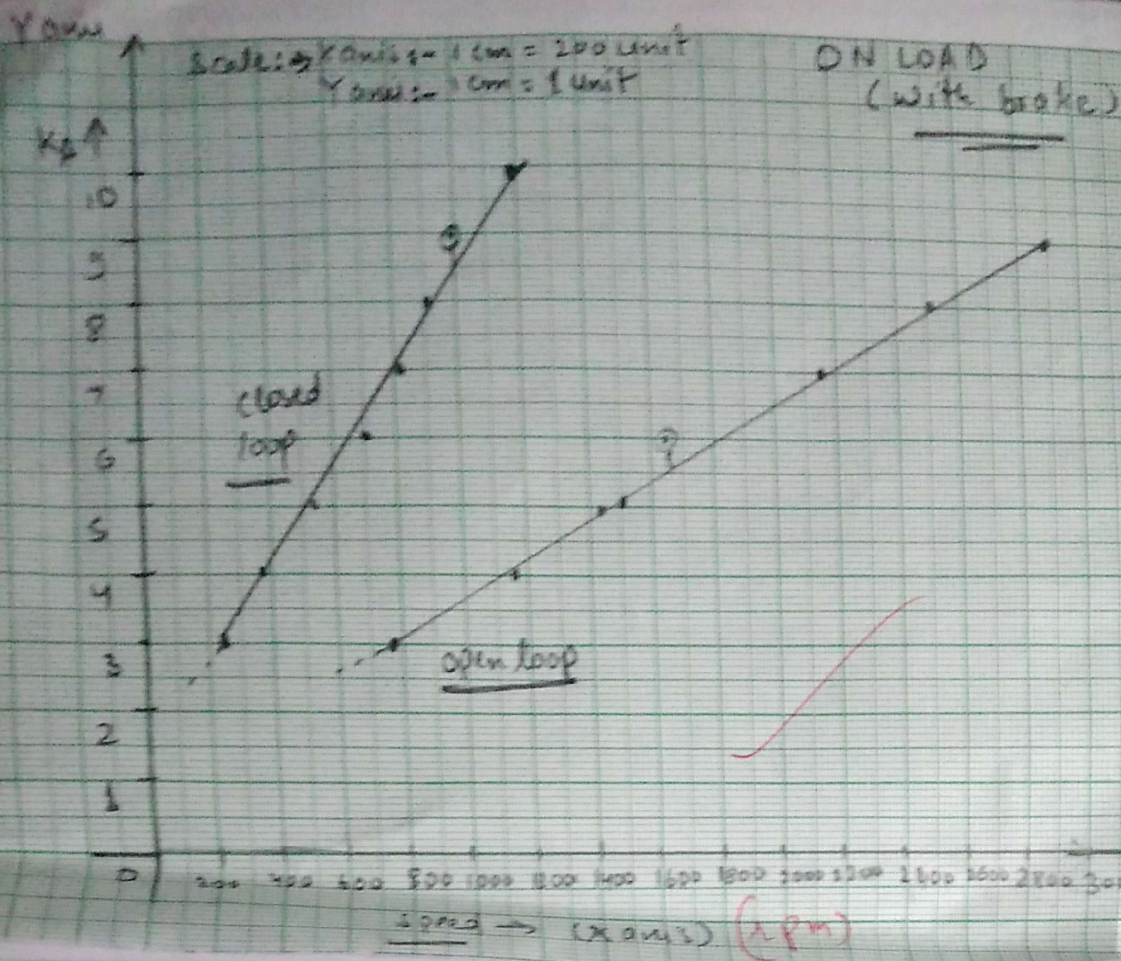 Y axis
Scale:→ X axis:- 1 cm = 200 unit
Y axis:- 1 cm = 1 unit
ON LOAD
(with brake)
10
9
8
7
6
5
4
3
2
1
0
closed
loop
open loop
200 400 600 800 1000 1200 1400 1600 1800 2000 2200 2400 2600 2800 300
speed → (x axis) (rpm)